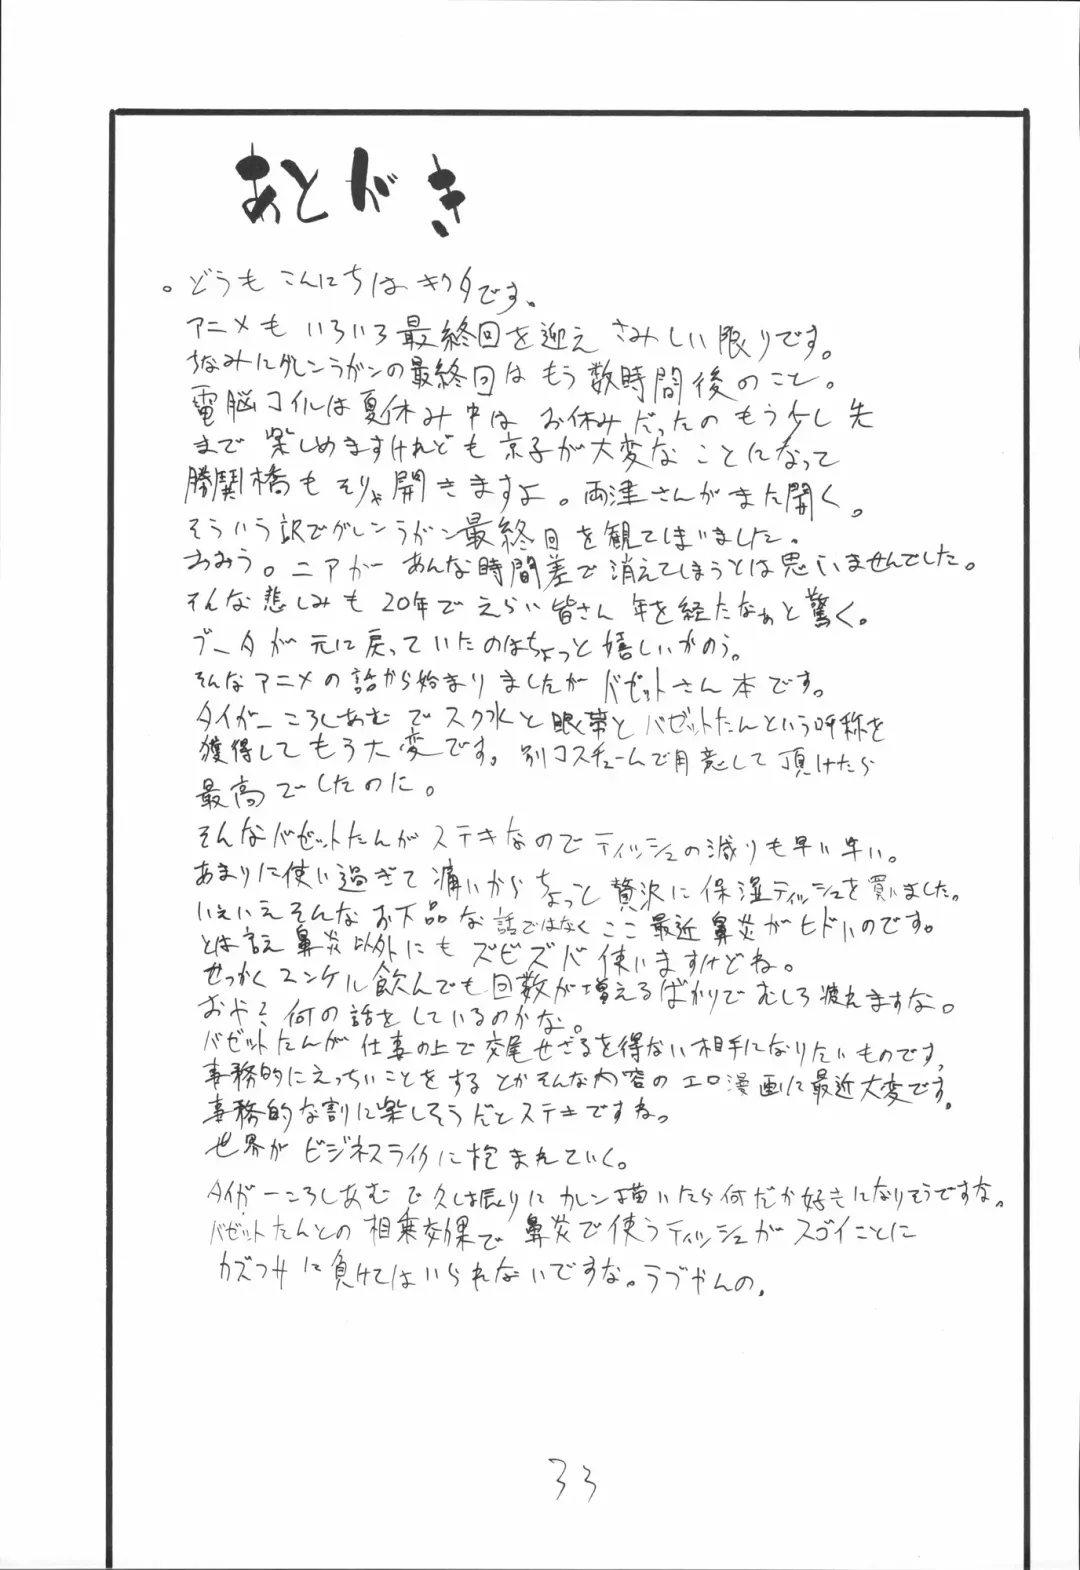 あとがき
。どうもこんにちはキクタです。
アニメもいろいろ最終回を迎えさみしい限りです。
ちなみにグレンラガンの最終回はもう数時間後のこと。
電脳コイルは夏休み中はお休みだったのもう少し先
まで楽しめますけれども京子が大変なことになって
勝鬨橋もそりゃ開きますよ。両津さんがまた開く。
そういう訳でグレンラガン最終回を観てしまいました。
おみう。ニアがあんな時間差で消えてしまうとは思いませんでした。
そんな悲しみも20年でえらい皆さん年を経たなぁと驚く。
ブータが元に戻っていたのはちょっと嬉しいかのう。
そんなアニメの話から始まりましたがバゼットさん本です。
タイガーころしあむでスク水と眼帯とバゼットたんという呼称を
獲得してもう大変です。別コスチュームで用意して頂けたら
最高でしたのに。
そんなバゼットたんがステキなのでティッシュの減りも早い早い。
あまりに使い過ぎて痛いからちょっと贅沢に保湿ティッシュを買いました。
いえいえそんなお下品な話ではなくここ最近鼻炎がヒドいのです。
とは言え鼻炎以外にもズビズバ使いますけどね。
せっかくユンケル飲んでも回数が増えるばかりでむしろ疲れますな。
おや?何の話をしているのかな。
バゼットたんが仕事の上で交尾せざるを得ない相手になりたいものです,
事務的にえっちいことをするとかそんな内容のエロ漫画に最近大変です。
事務的な割に楽しそうだとステキですね。
世界がビジネスライクに包まれていく。
タイガーころしあむで久し振りにカレン描いたら何だか好きになりそうですな。
バゼットたんとの相乗効果で鼻炎で使うティッシュがスゴイことに
カズフサに負けてはいられないですな。ラブやんの。
33